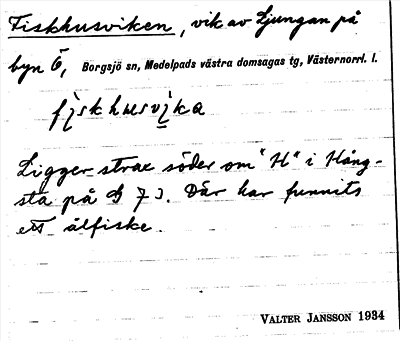 Fiskhusviken, vik av Ljungan på
byn Ö, Borgsjö sn, Medelpads västra domsagas tg, Västernorrl. l.
fiskhusvika
Ligger strax söder om "H" i Hång-
sta på G 73. Där har funnits
ett ålfiske.
VALTER JANSSON 1934